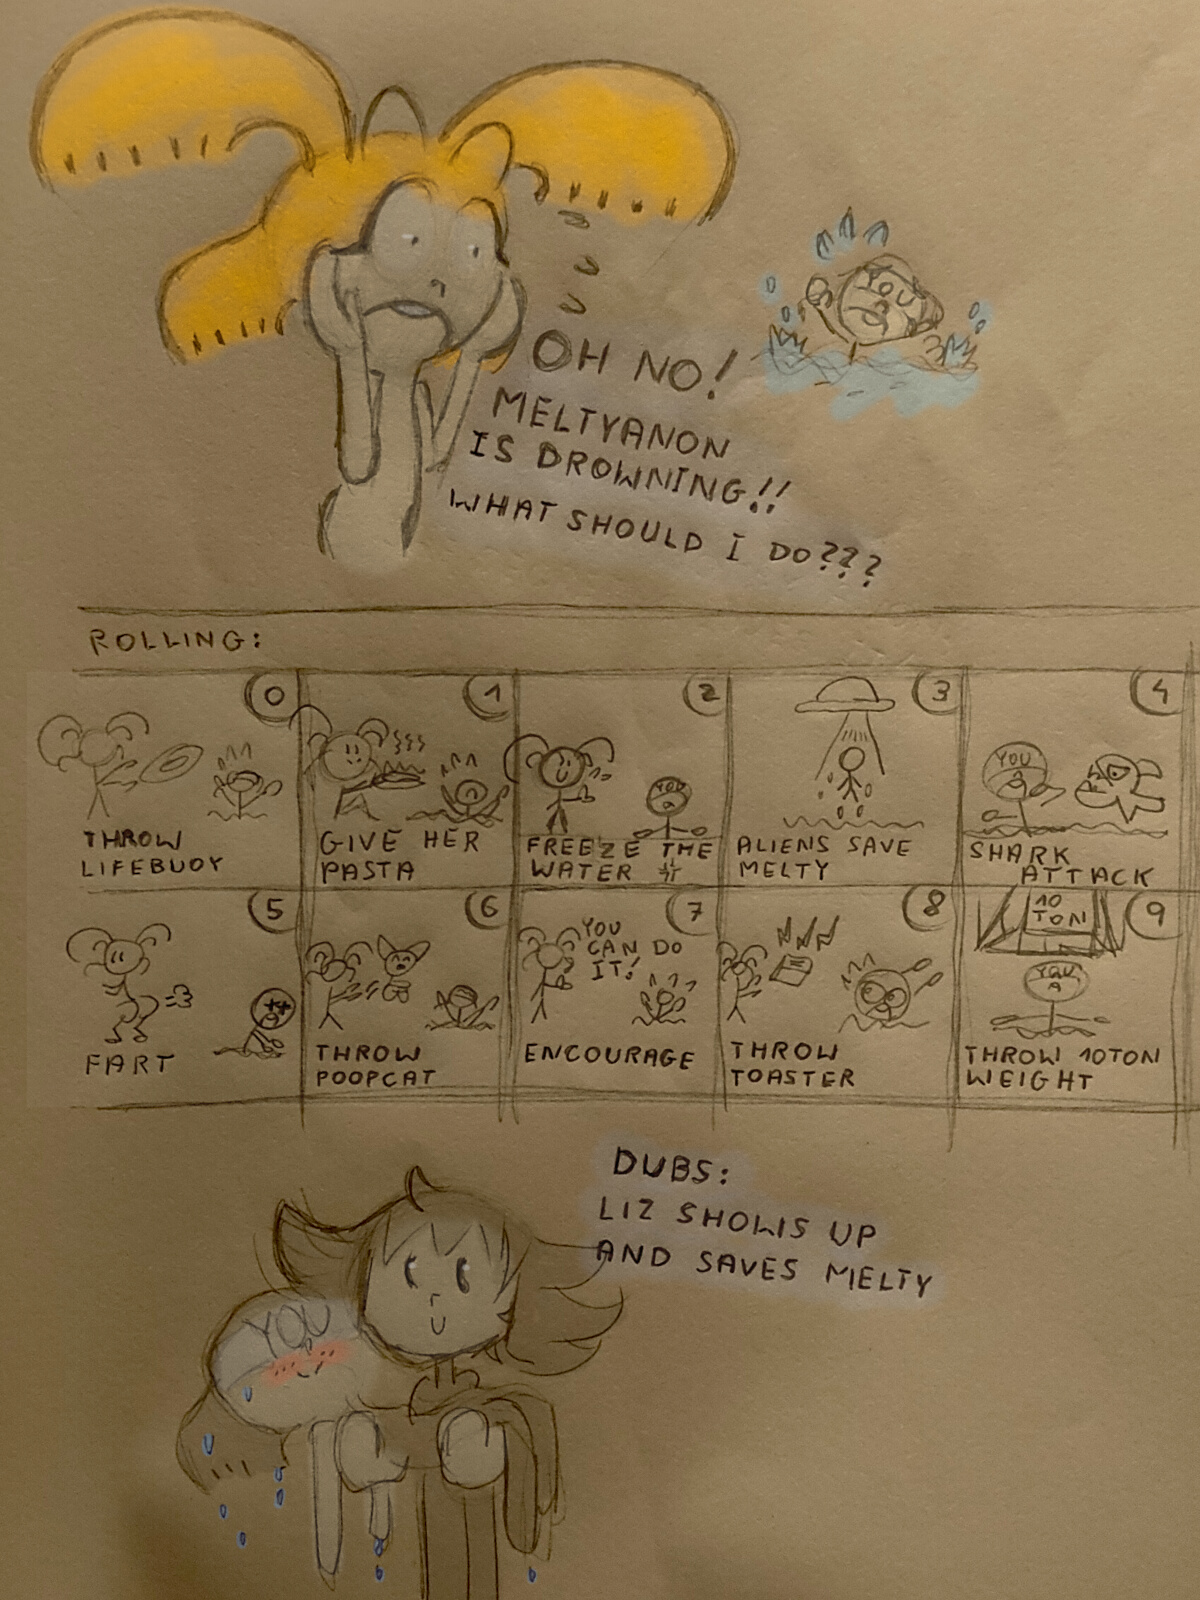 OH NO!
MELTYANON
IS DROWNING!!
WHAT SHOULD I DO???
ROLLING:
0
THROW
LIFEBUOY
1
GIVE HER
PASTA
2
YOU
FREEZE THE
WATER
3
ALIENS SAVE
MELTY
4
YOU
SHARK
ATTACK
5
FART
6
THROW
POOPCAT
7
YOU
CAN DO
IT!
ENCOURAGE
8
THROW
TOASTER
9
10
TON
YOU
THROW 10TON
WEIGHT
DUBS:
LIZ SHOWS UP
AND SAVES MELTY
YOU